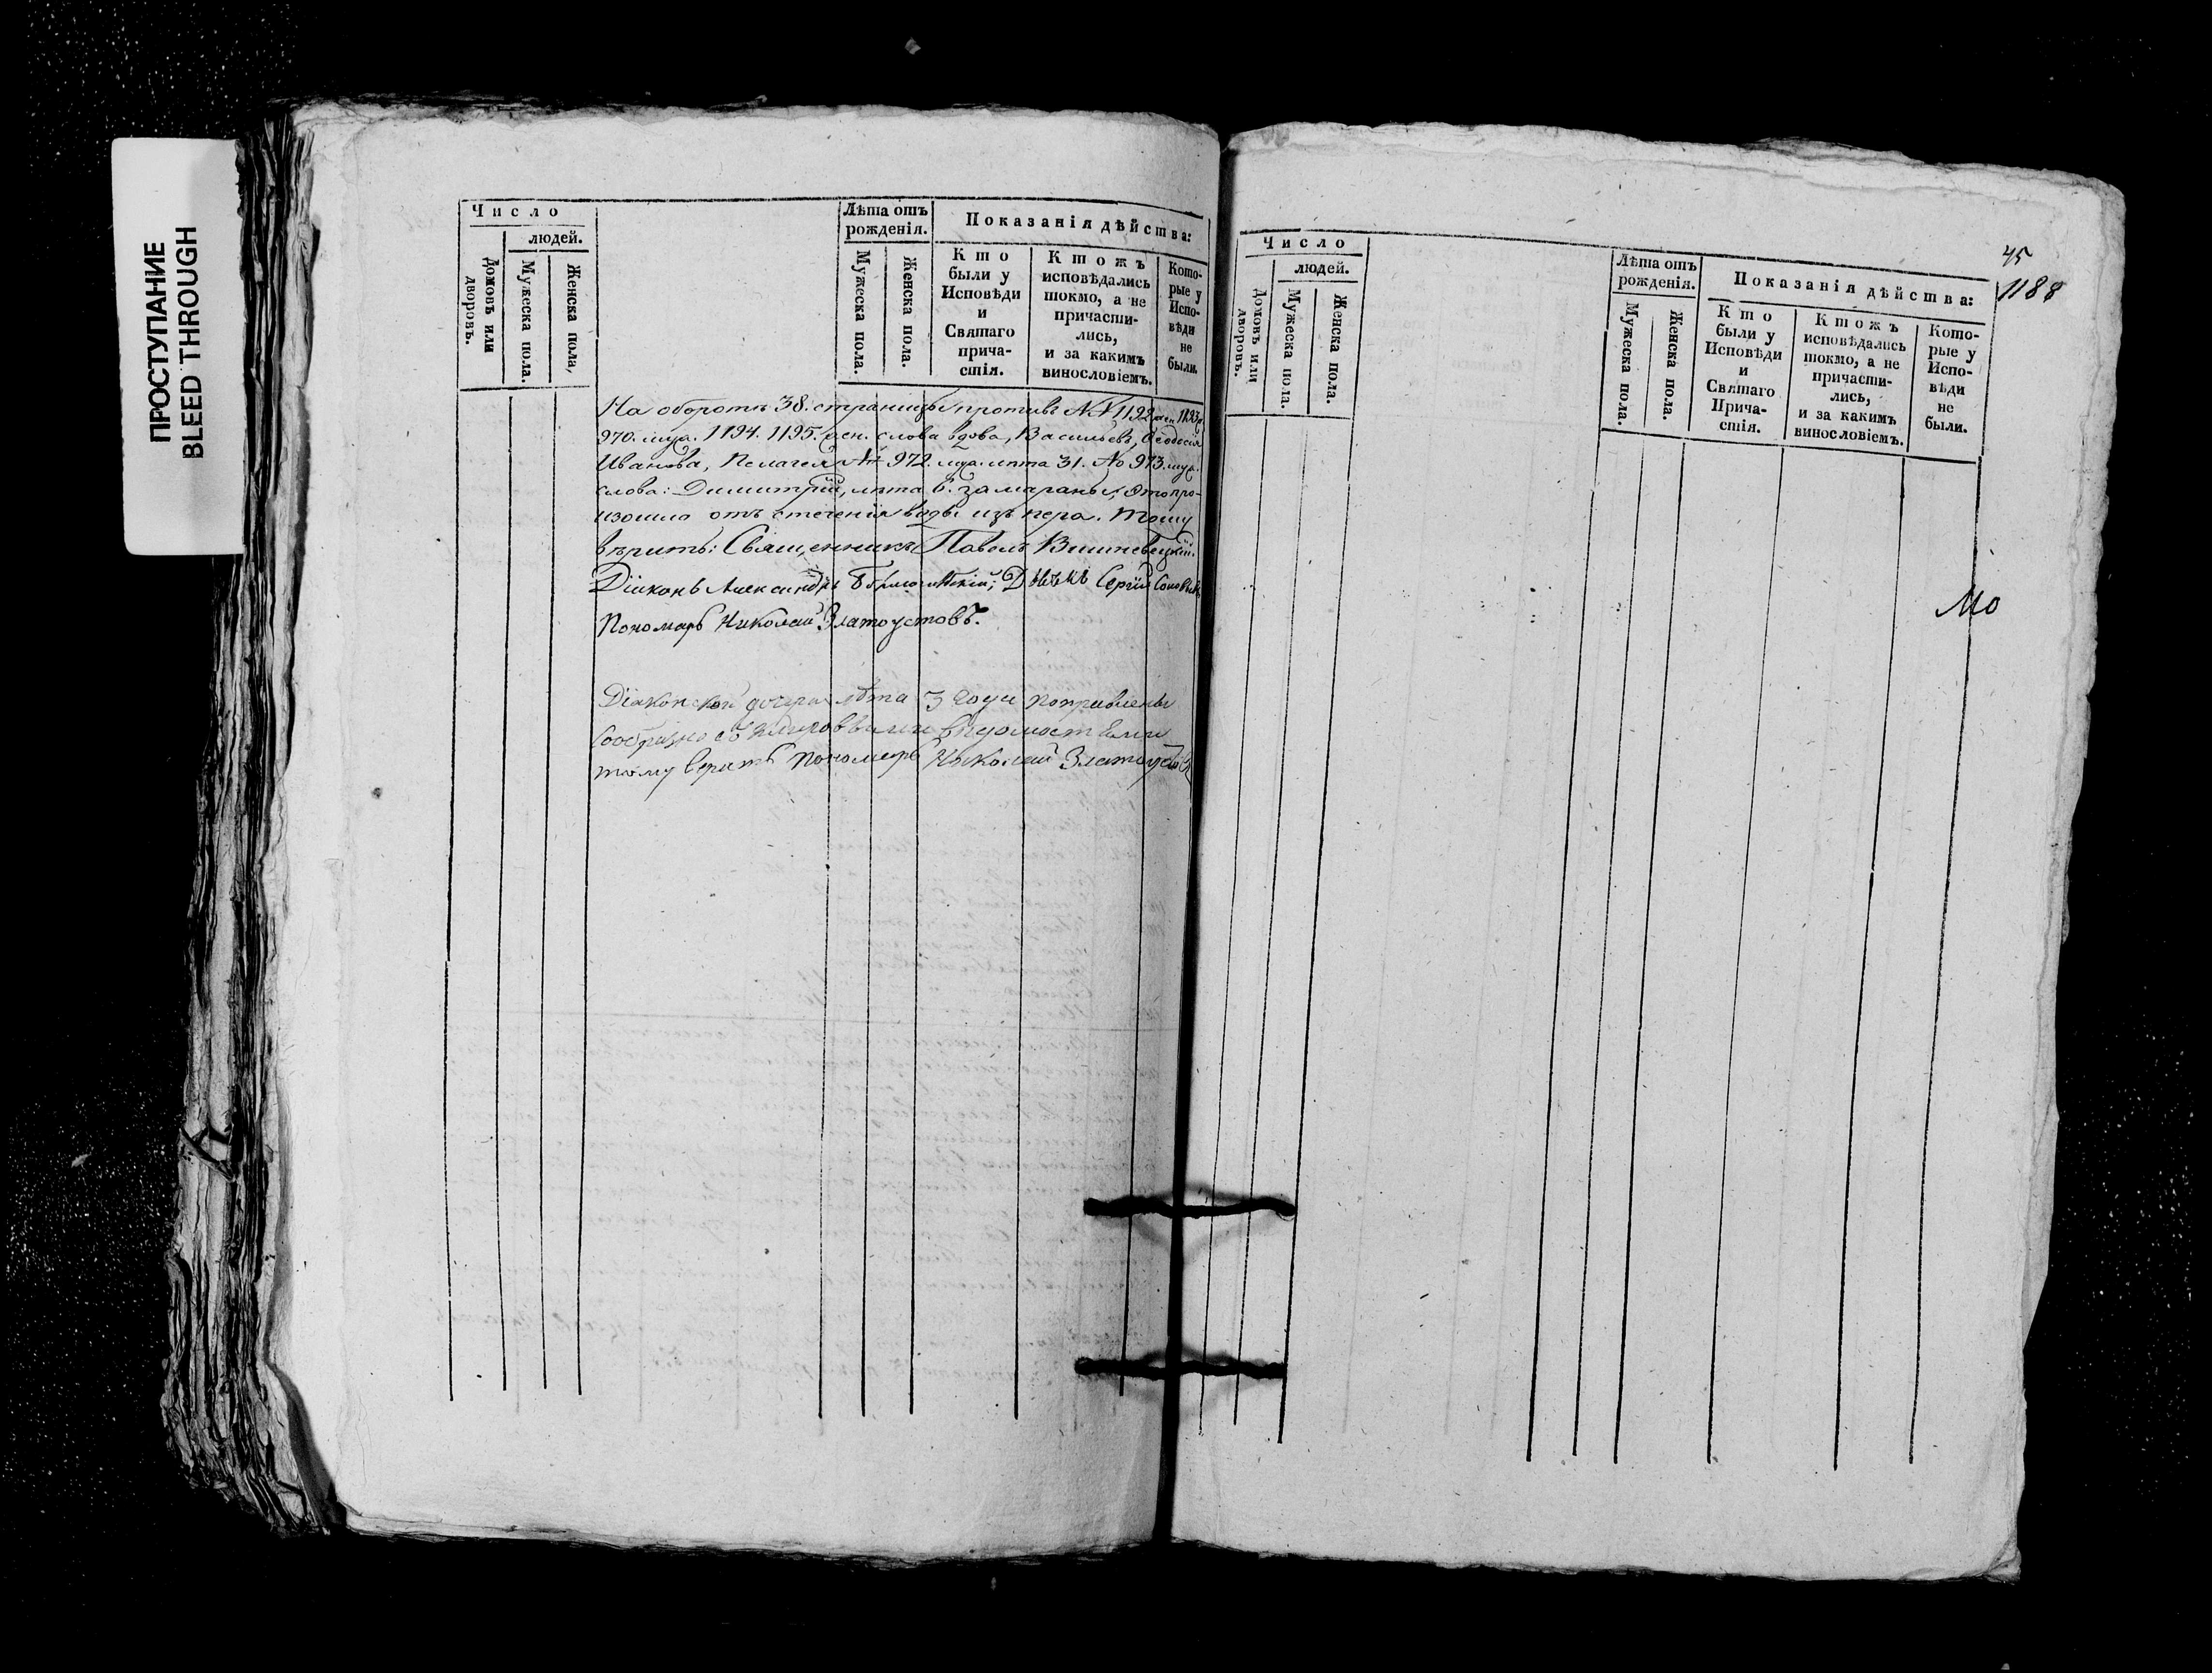 ПРОСТУПАНИЕ
BLEED THROUGH
Число
людей.
домовъ или дворовъ.
Мужеска пола.
Женска пола.
Лѣта отъ рожденія.
Мужеска пола.
Женска пола.
Показанія дѣйства:
Кто были у Исповѣди и Святаго причастія.
Ктожъ исповѣдались токмо, а не причастились, и за какимъ винословіемъ.
Которые у Исповѣди не были.
На оборотѣ 38. страницы противъ №№ 1192 жен. 1193
970. муж. 1194. 1195. жен. слова вдова, Васильевъ, Ѳеодосія
Иванова, Пелагея № 972. муж. лѣта 31. № 973. муж.
слова: Димитрій, лѣта 6. замараны, Это про-
изошло отъ стеченія воды изъ пера. Тому
вѣритъ: Священникъ Павелъ Вишневецкій.
Діаконъ Александръ Дьякъ Сергій
Пономарь Николай Златоустовъ.
Діаконской дочери лѣта 3 года поправлены
сообразно съ клировыми вѣдомостями
тому веритъ пономарь Николай Златоустов
45
1188
Число
людей.
домовъ или дворовъ.
Мужеска пола.
Женска пола.
Лѣта отъ рожденія.
Мужеска пола.
Женска пола.
Показанія дѣйства:
Кто были у Исповѣди и Святаго Причастія.
Ктожъ исповѣдались токмо, а не причастились, и за какимъ винословіемъ.
Которые у Исповѣди не были.